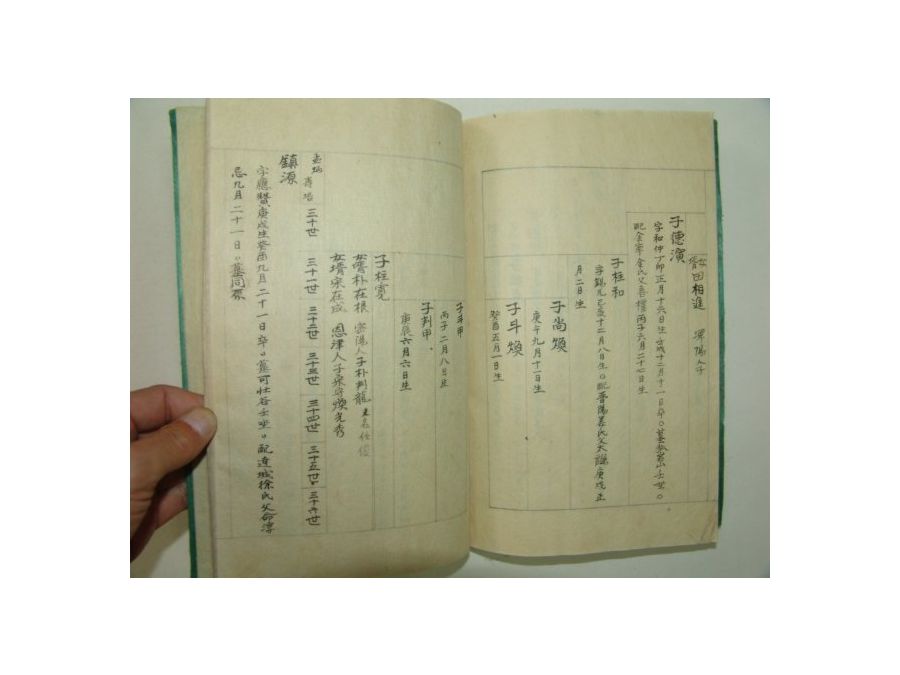 女壻田相進 潭陽人子
子德演
字和仲丁卯正月十六日生 戊戌十二月十一日卒。墓 山壬坐。
配金寧金氏父 權丙子六月二十七日生
子柱和
字錫九己亥十二月八日生。配晋陽姜氏父 謙庚戌正
月二日生
子尚煩
庚午九月十一日生
子斗煩
癸酉五月一日生
子斗甲
丙子二月八日生
子判甲
庚辰六月六日生
子柱寬
女壻朴在根 密陽人子朴判龍
女壻宋在成 恩津人子宋守煥光秀
三十世 三十一世 三十二世 三十三世 三十四世 三十五世 三十六世
鎮源
字應贊庚戌生癸酉九月二十一日卒。墓可壯谷壬坐。配達城徐氏父命淳
忌九月二十一日。墓同原